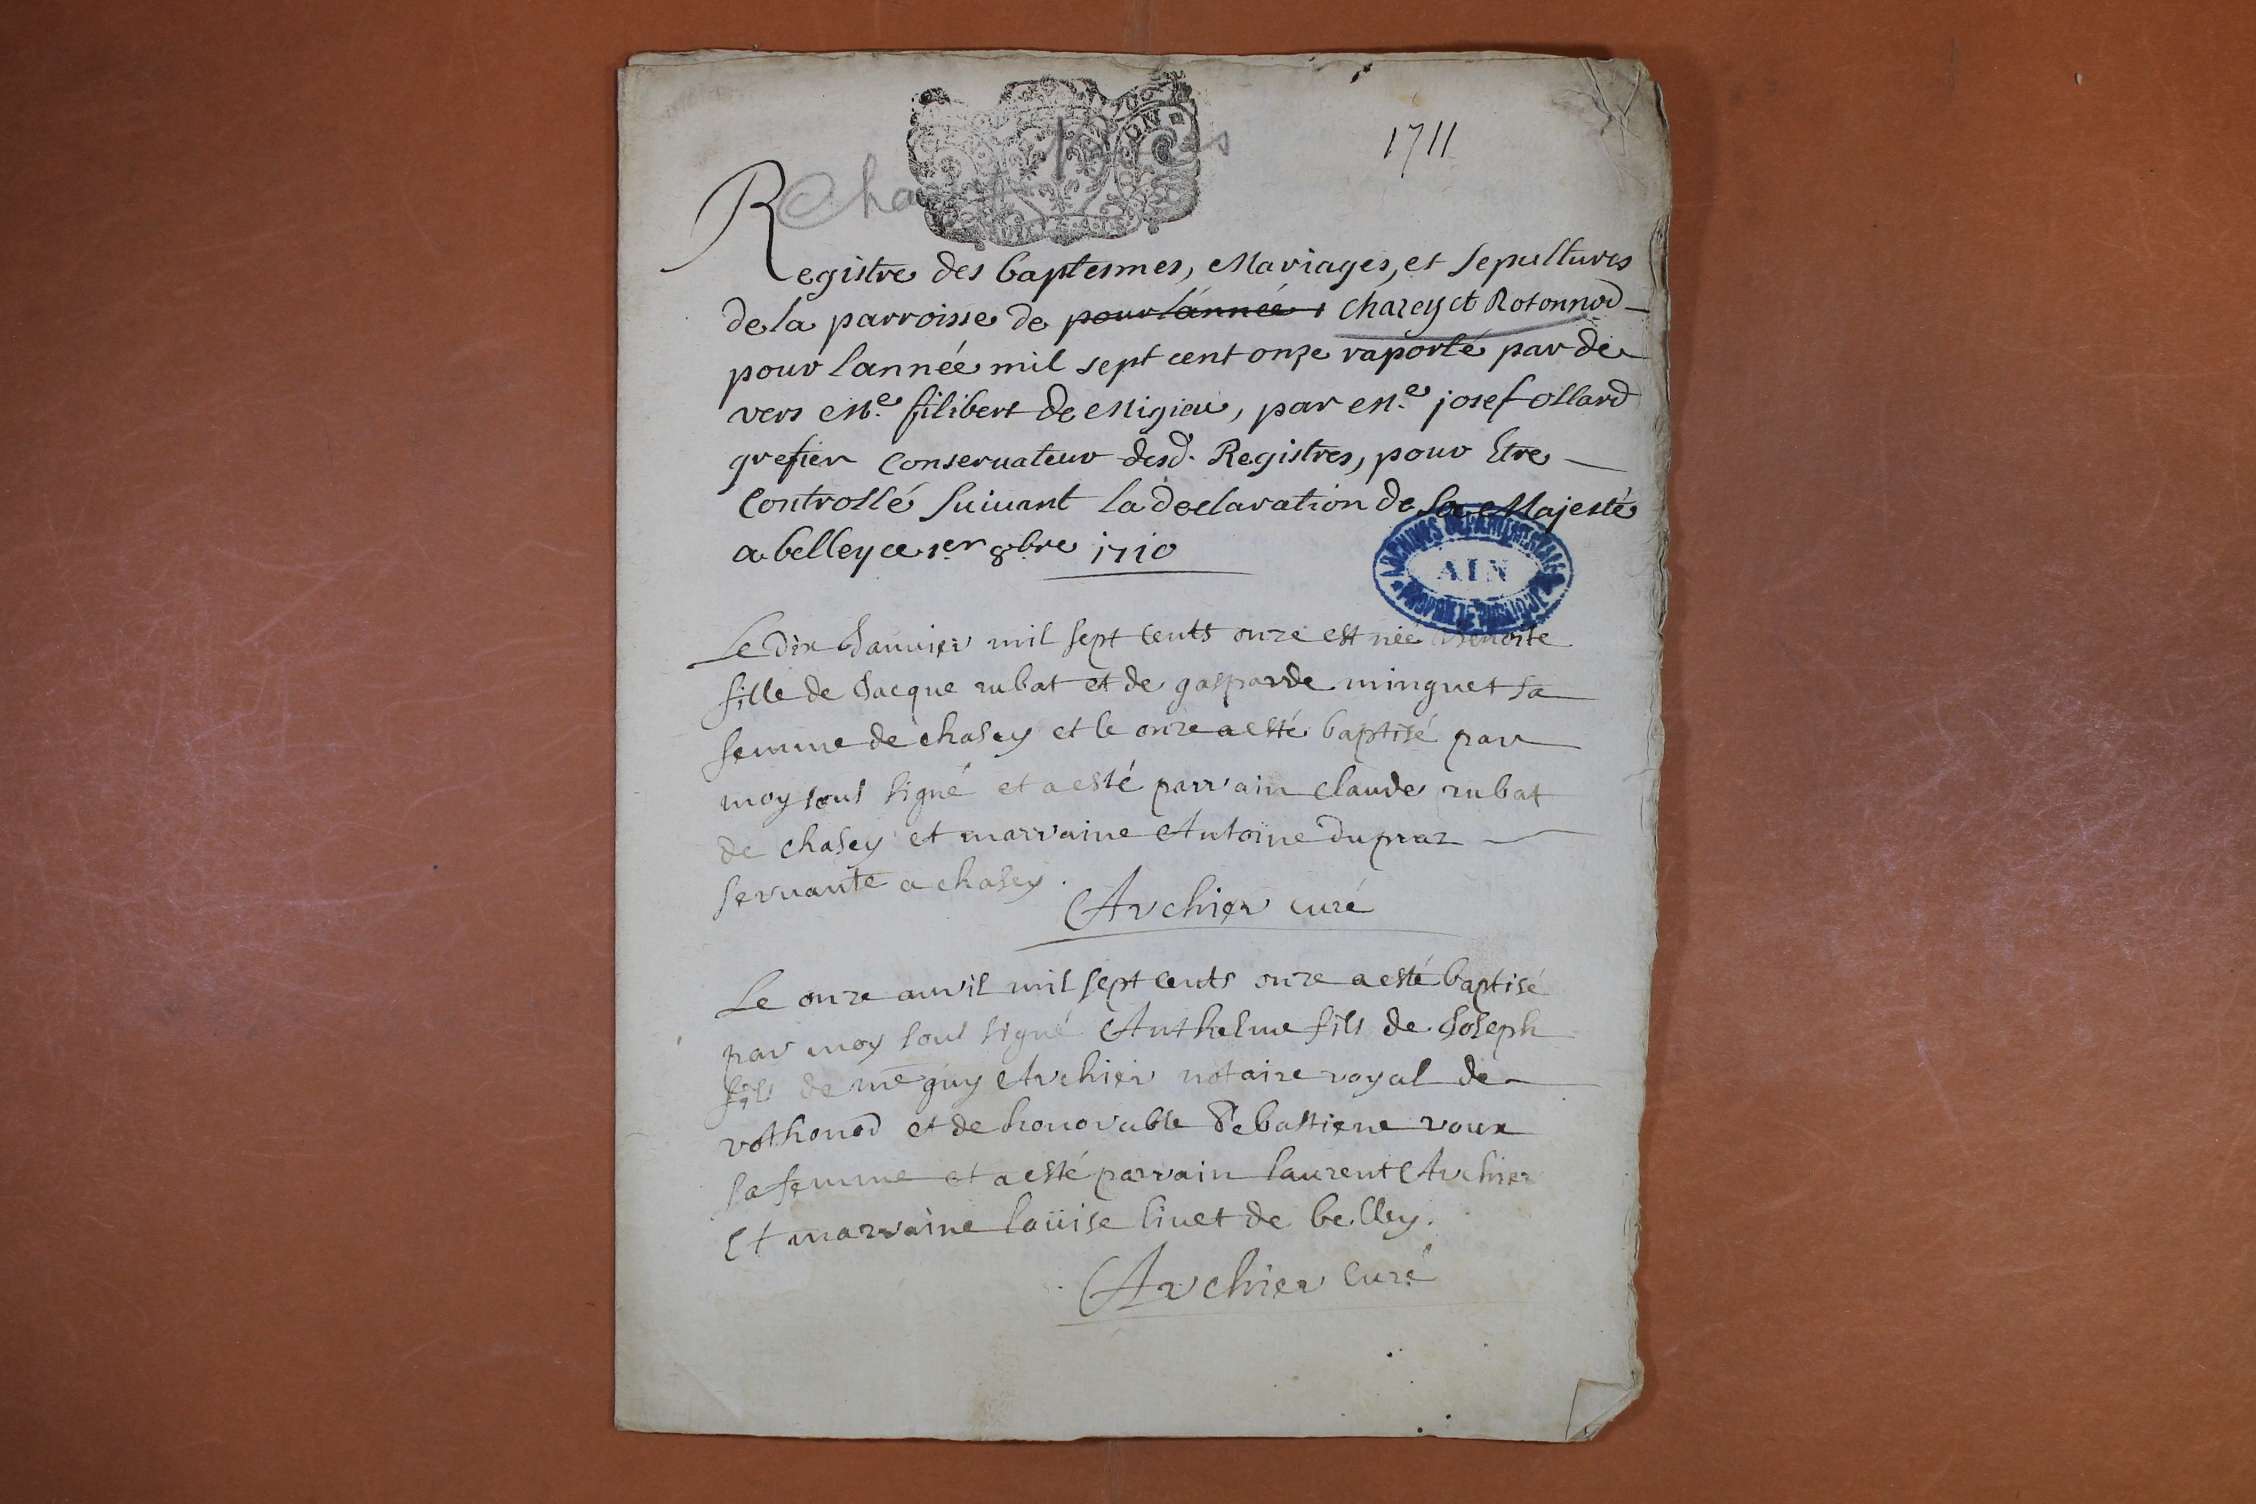 1711
Registre des baptesmes, Mariages, et sepultures
de la parroisse de pour lánnéé chazey et Rotonnod
pour lannéé mil sept cent onze raporté par de
vers Me. filibert de Migieu, par Me. josef ollard
grefier Conseruateur desd. Registres, pour Etre
Controllé suiuant la declaration de Sa Majesté
a belley ce 1er 8bre 1710
ARCHIVES DEPARTEMENTALES
AIN
Le dix Januier mil sept cents onze est néé Benoite
fille de Jacque rubat et de gasparde minguet sa
femme de chasey et le onze a esté baptisé par
moy sous signé et a esté parrain claude rubat
de chasey et marraine Antoine du praz
seruante a chasey.
Archier curé
Le onze auril mil sept cents onze a esté baptisé
par moy sous signé Anthelme fils de Joseph
fils de me guy Archier notaire royal de
rothonod et de honorable Sebastiene roux
sa femme et a esté parrain laurent Archier
Et marraine loüise liuet de belley.
Archier curé